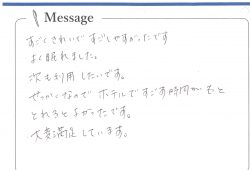 Message
すごくきれいで すごしやすかったです
よく眠れました。
次も利用したいです。
せっかくなので ホテルですごす時間がもっと
とれるとよかったです。
大変満足しています。